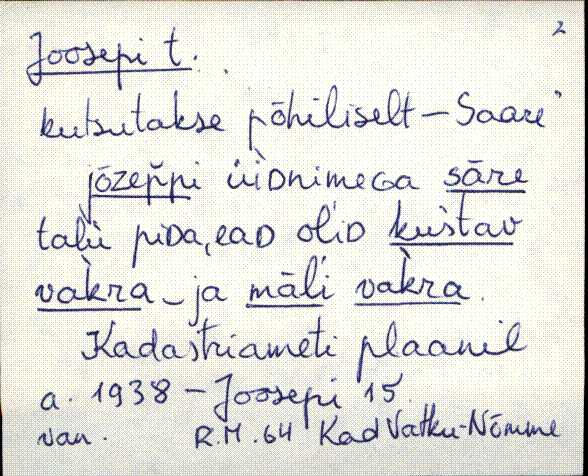 2
Joosepi t.
kutsutakse põhiliselt – Saare
jōzep̆pi üìDnimeGa sāre
talù piDa,eaD olìD kus̀tav
vak̀ra – ja māli vak̀ra.
Kadastriameti plaanil
a. 1938 – Joosepi 15.
van. R.M. 64 Kad Vatku-Nõmme